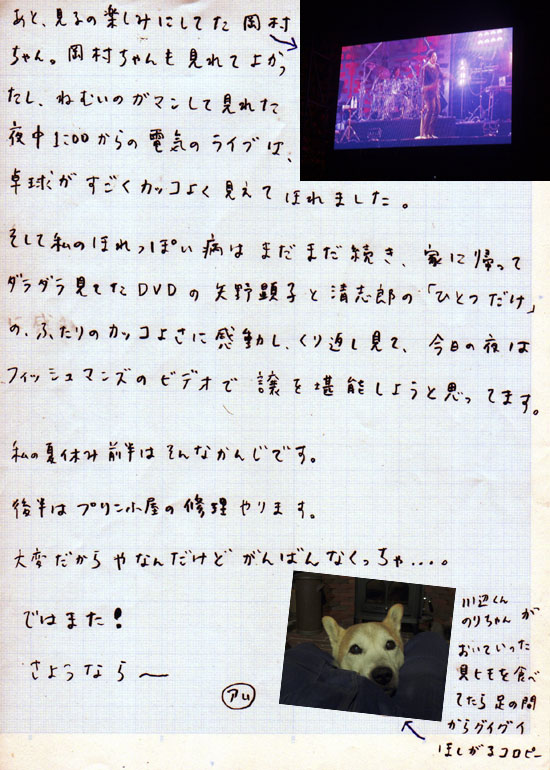 あと、見るの楽しみにしてた 岡村
ちゃん。岡村ちゃんも見れてよかっ
たし、ねむいのガマンして見れた
夜中1:00からの電気のライブは、
卓球がすごくカッコよく見えてほれました。
そして私のほれっぽい病はまだまだ続き、家に帰って
ダラダラ見てたDVDの矢野顕子と清志郎の「ひとつだけ」
の、ふたりのカッコよさに感動し、くり返し見て、今日の夜は
フィッシュマンズのビデオで譲を堪能しようと思ってます。
私の夏休み前半はそんなかんじです。
後半はプリン小屋の修理やります。
大変だからやなんだけどがんばんなくっちゃ....。
ではまた!
さようなら〜
アム
川辺くん
のりちゃんが
おいていった
貝ヒモを食べ
てたら足の間
からグイグイ
ほしがるコロピー